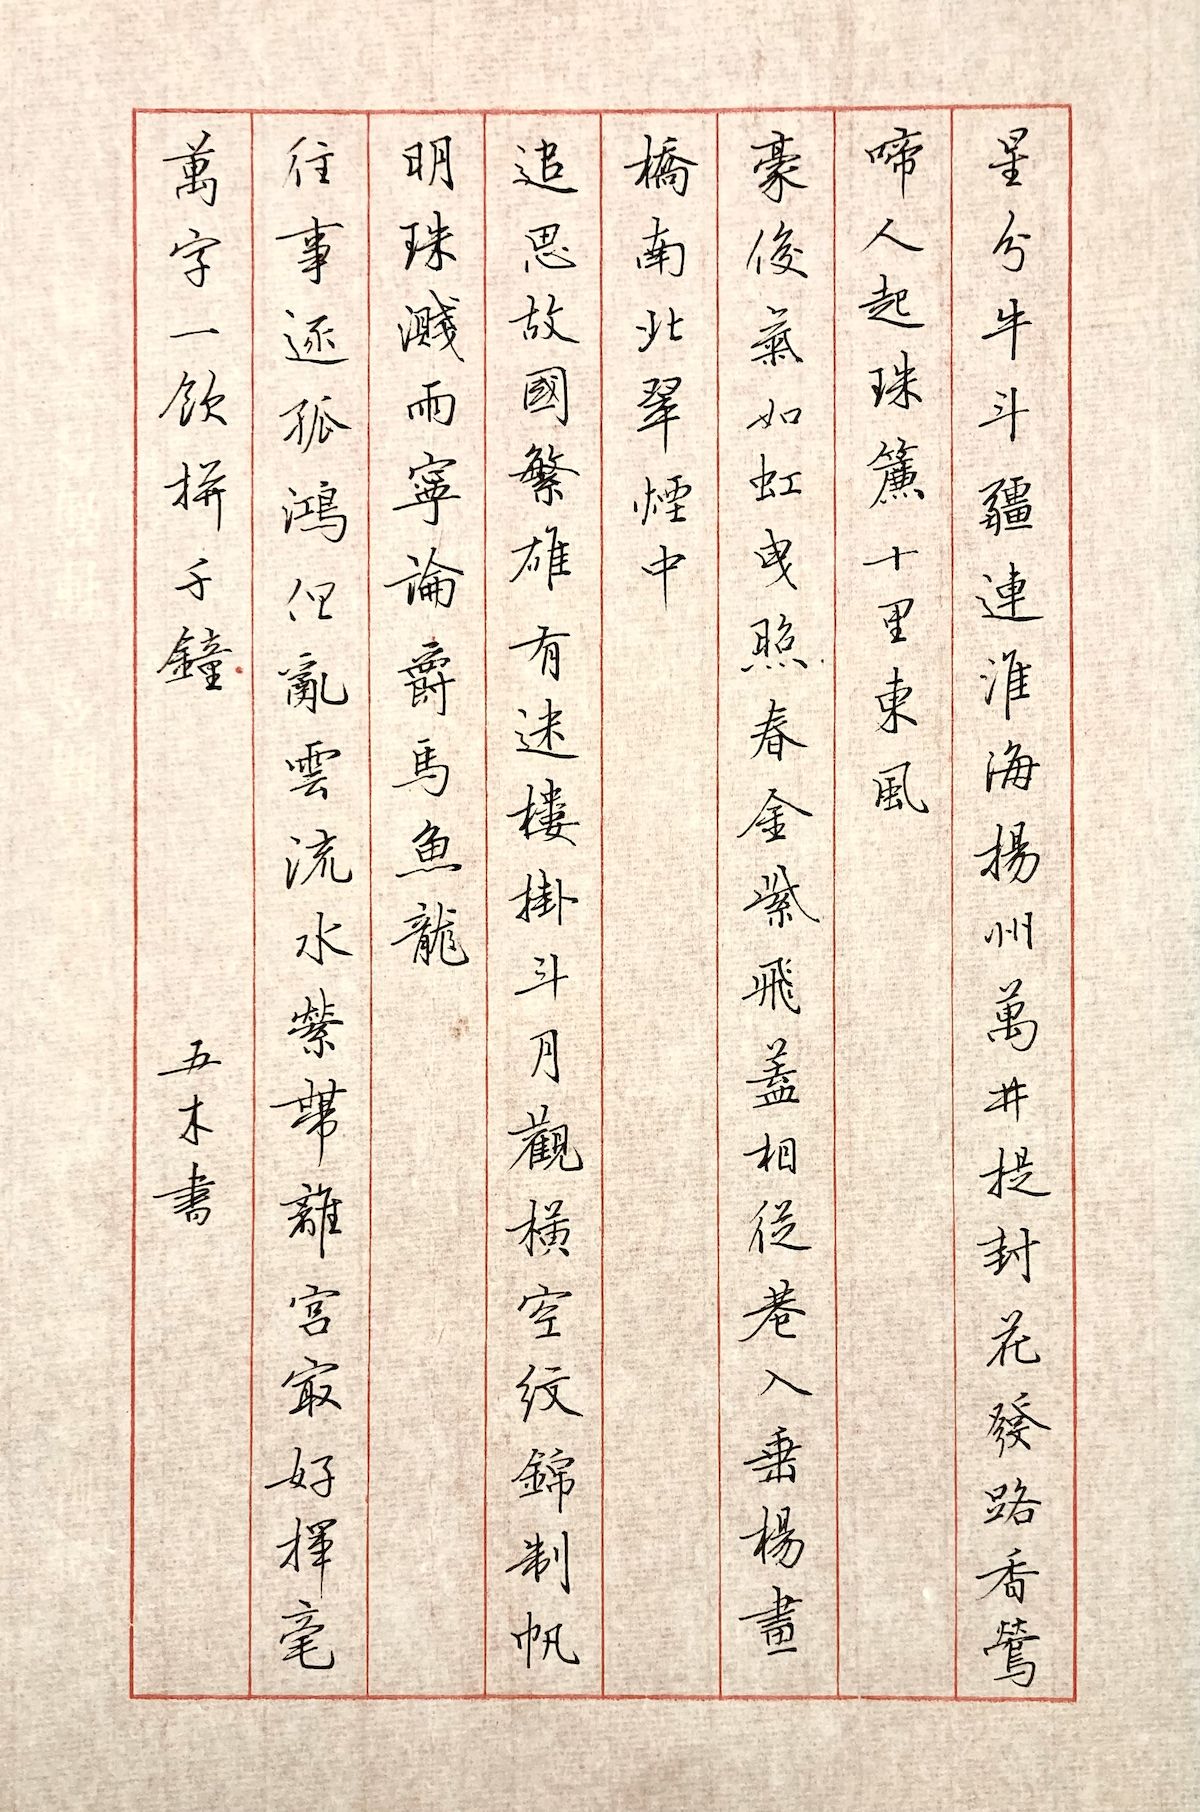 星分牛斗疆連淮海揚州萬井提封花發路香鶯
啼人起珠簾十里東風
豪俊氣如虹曳照春金紫飛蓋相從巷入垂楊畫
橋南北翠煙中
追思故國繁雄有迷樓掛斗月觀橫空紋錦制帆
明珠濺雨寧論爵馬魚龍
往事逐孤鴻但亂雲流水縈帶離宮最好揮毫
萬字一飲拚千鐘
五木書